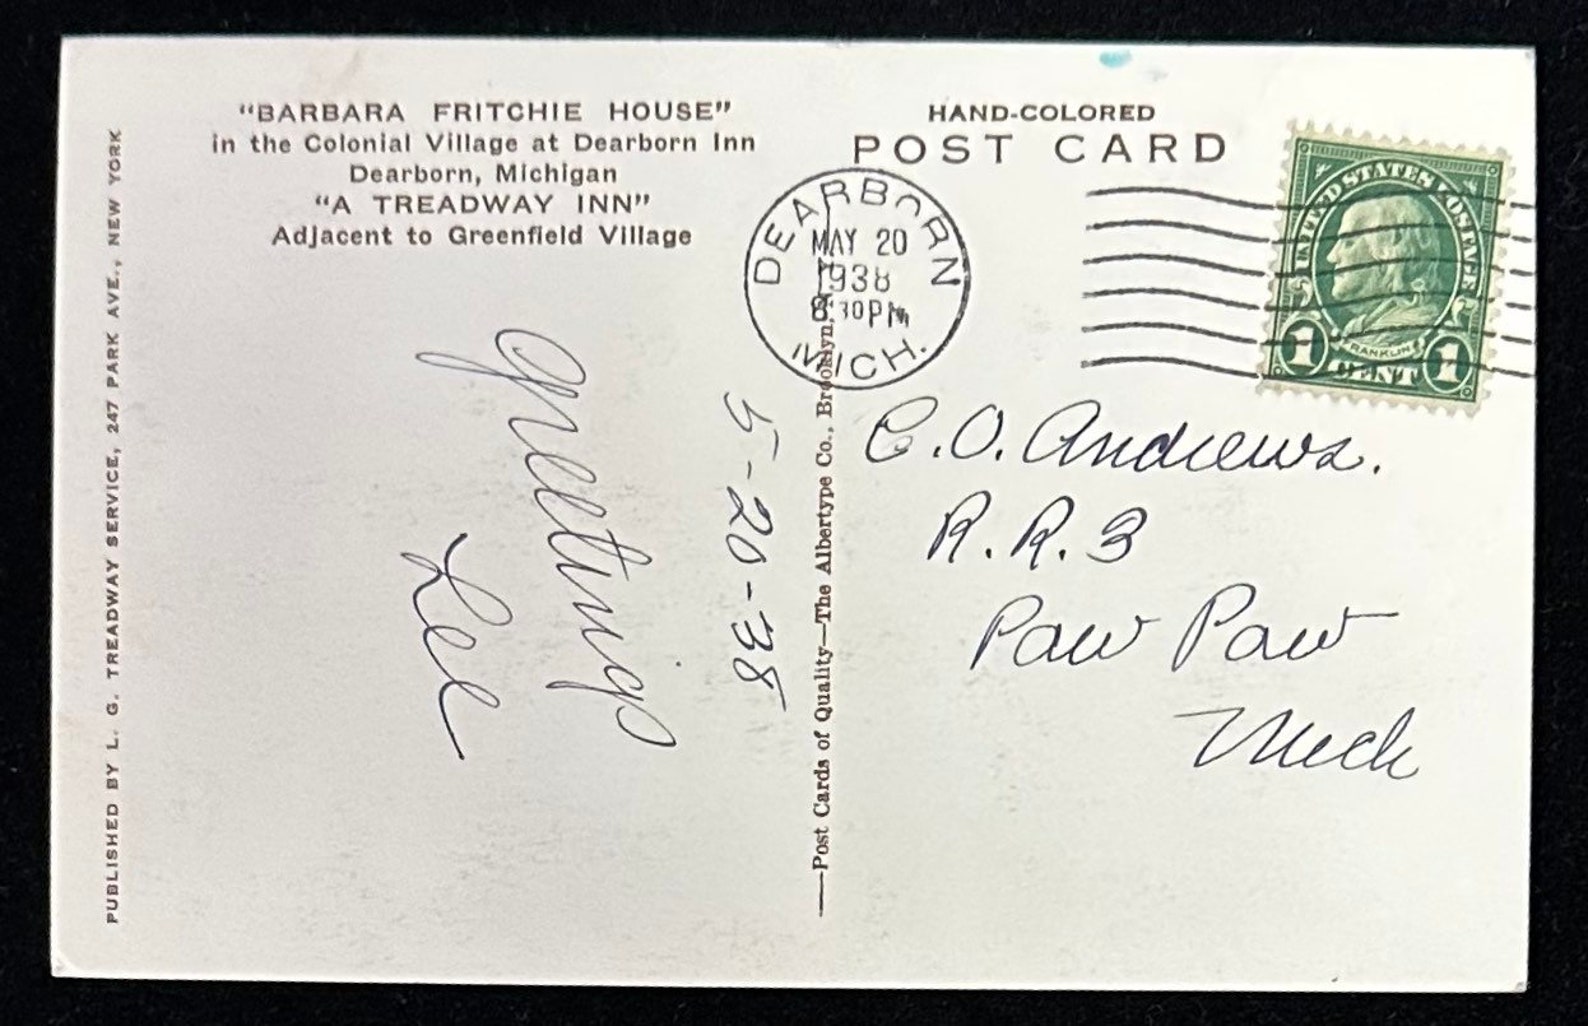 "BARBARA FRITCHIE HOUSE"
in the Colonial Village at Dearborn Inn
Dearborn, Michigan
"A TREADWAY INN"
Adjacent to Greenfield Village
PUBLISHED BY L. G. TREADWAY SERVICE, 247 PARK AVE., NEW YORK
Greetings
Lee
5-20-38
—Post Cards of Quality—The Albertype Co., Brooklyn, N. Y.
HAND-COLORED
POST CARD
DEARBORN
MAY 20
1938
8 30 PM
MICH.
UNITED STATES POSTAGE
FRANKLIN
1 CENT 1
C.O. Andrews.
R.R. 3
Paw Paw
Mich